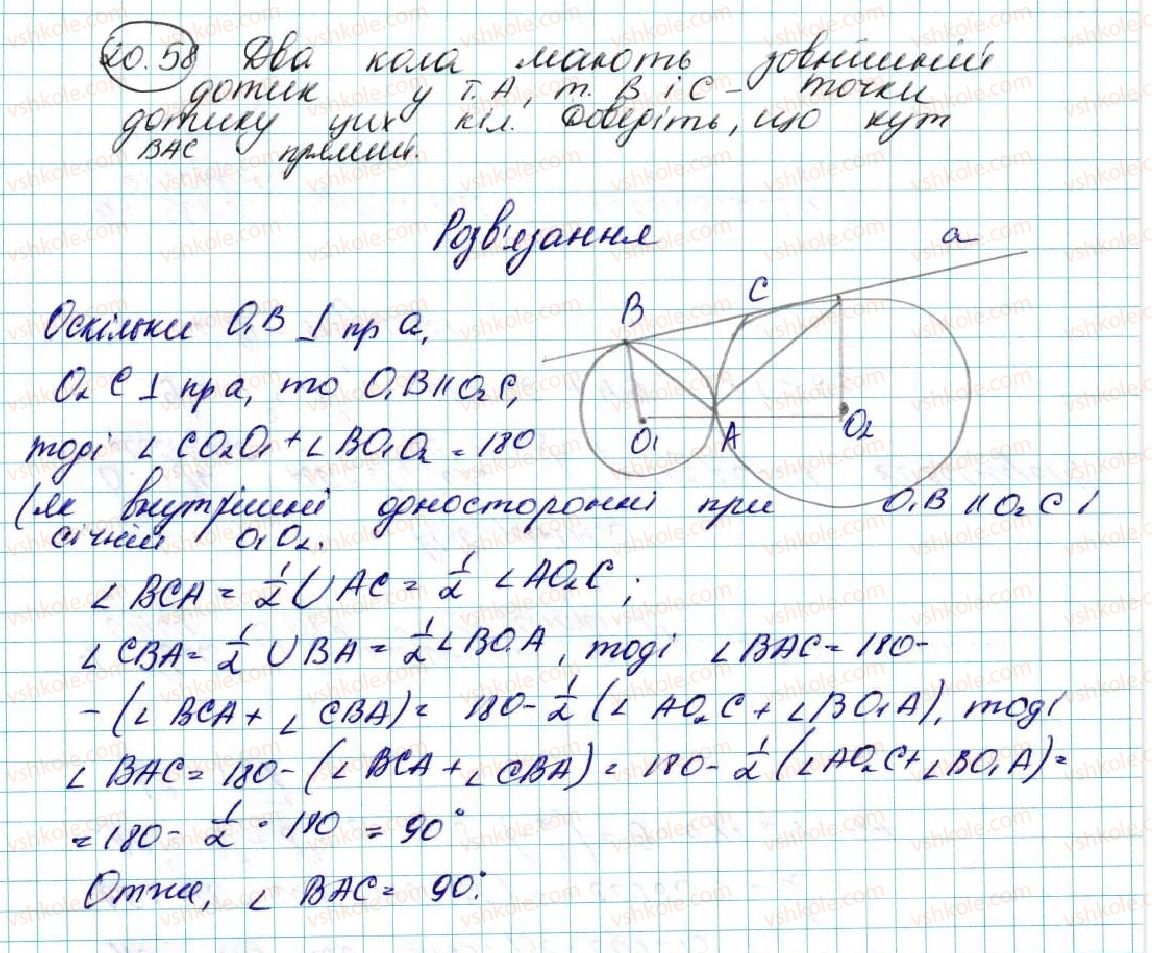 20.58 Два кола мають зовнішній
дотик у т. А, т. В і С – точки
дотику цих кіл. Доведіть, що кут
ВАС прямий.
Розв'язання
a
B
C
O₁
A
O₂
Оскільки O₁B ⊥ пр a,
O₂C ⊥ пр a, то O₁B || O₂C,
тоді ∠ CO₂O₁ + ∠ BO₁O₂ = 180
(як внутрішні односторонні при O₁B || O₂C і
січній O₁O₂.
∠ BCA = 1/2 ∪ AC = 1/2 ∠ AO₂C ;
∠ CBA = 1/2 ∪ BA = 1/2 ∠ BO₁A , тоді ∠ BAC = 180 -
- (∠ BCA + ∠ CBA) = 180 - 1/2 (∠ AO₂C + ∠ BO₁A), тоді
∠ BAC = 180 - (∠ BCA + ∠ CBA) = 180 - 1/2 (∠ AO₂C + ∠ BO₁A) =
= 180 - 1/2 · 180 = 90°
Отже, ∠ BAC = 90°.
vshkole.com